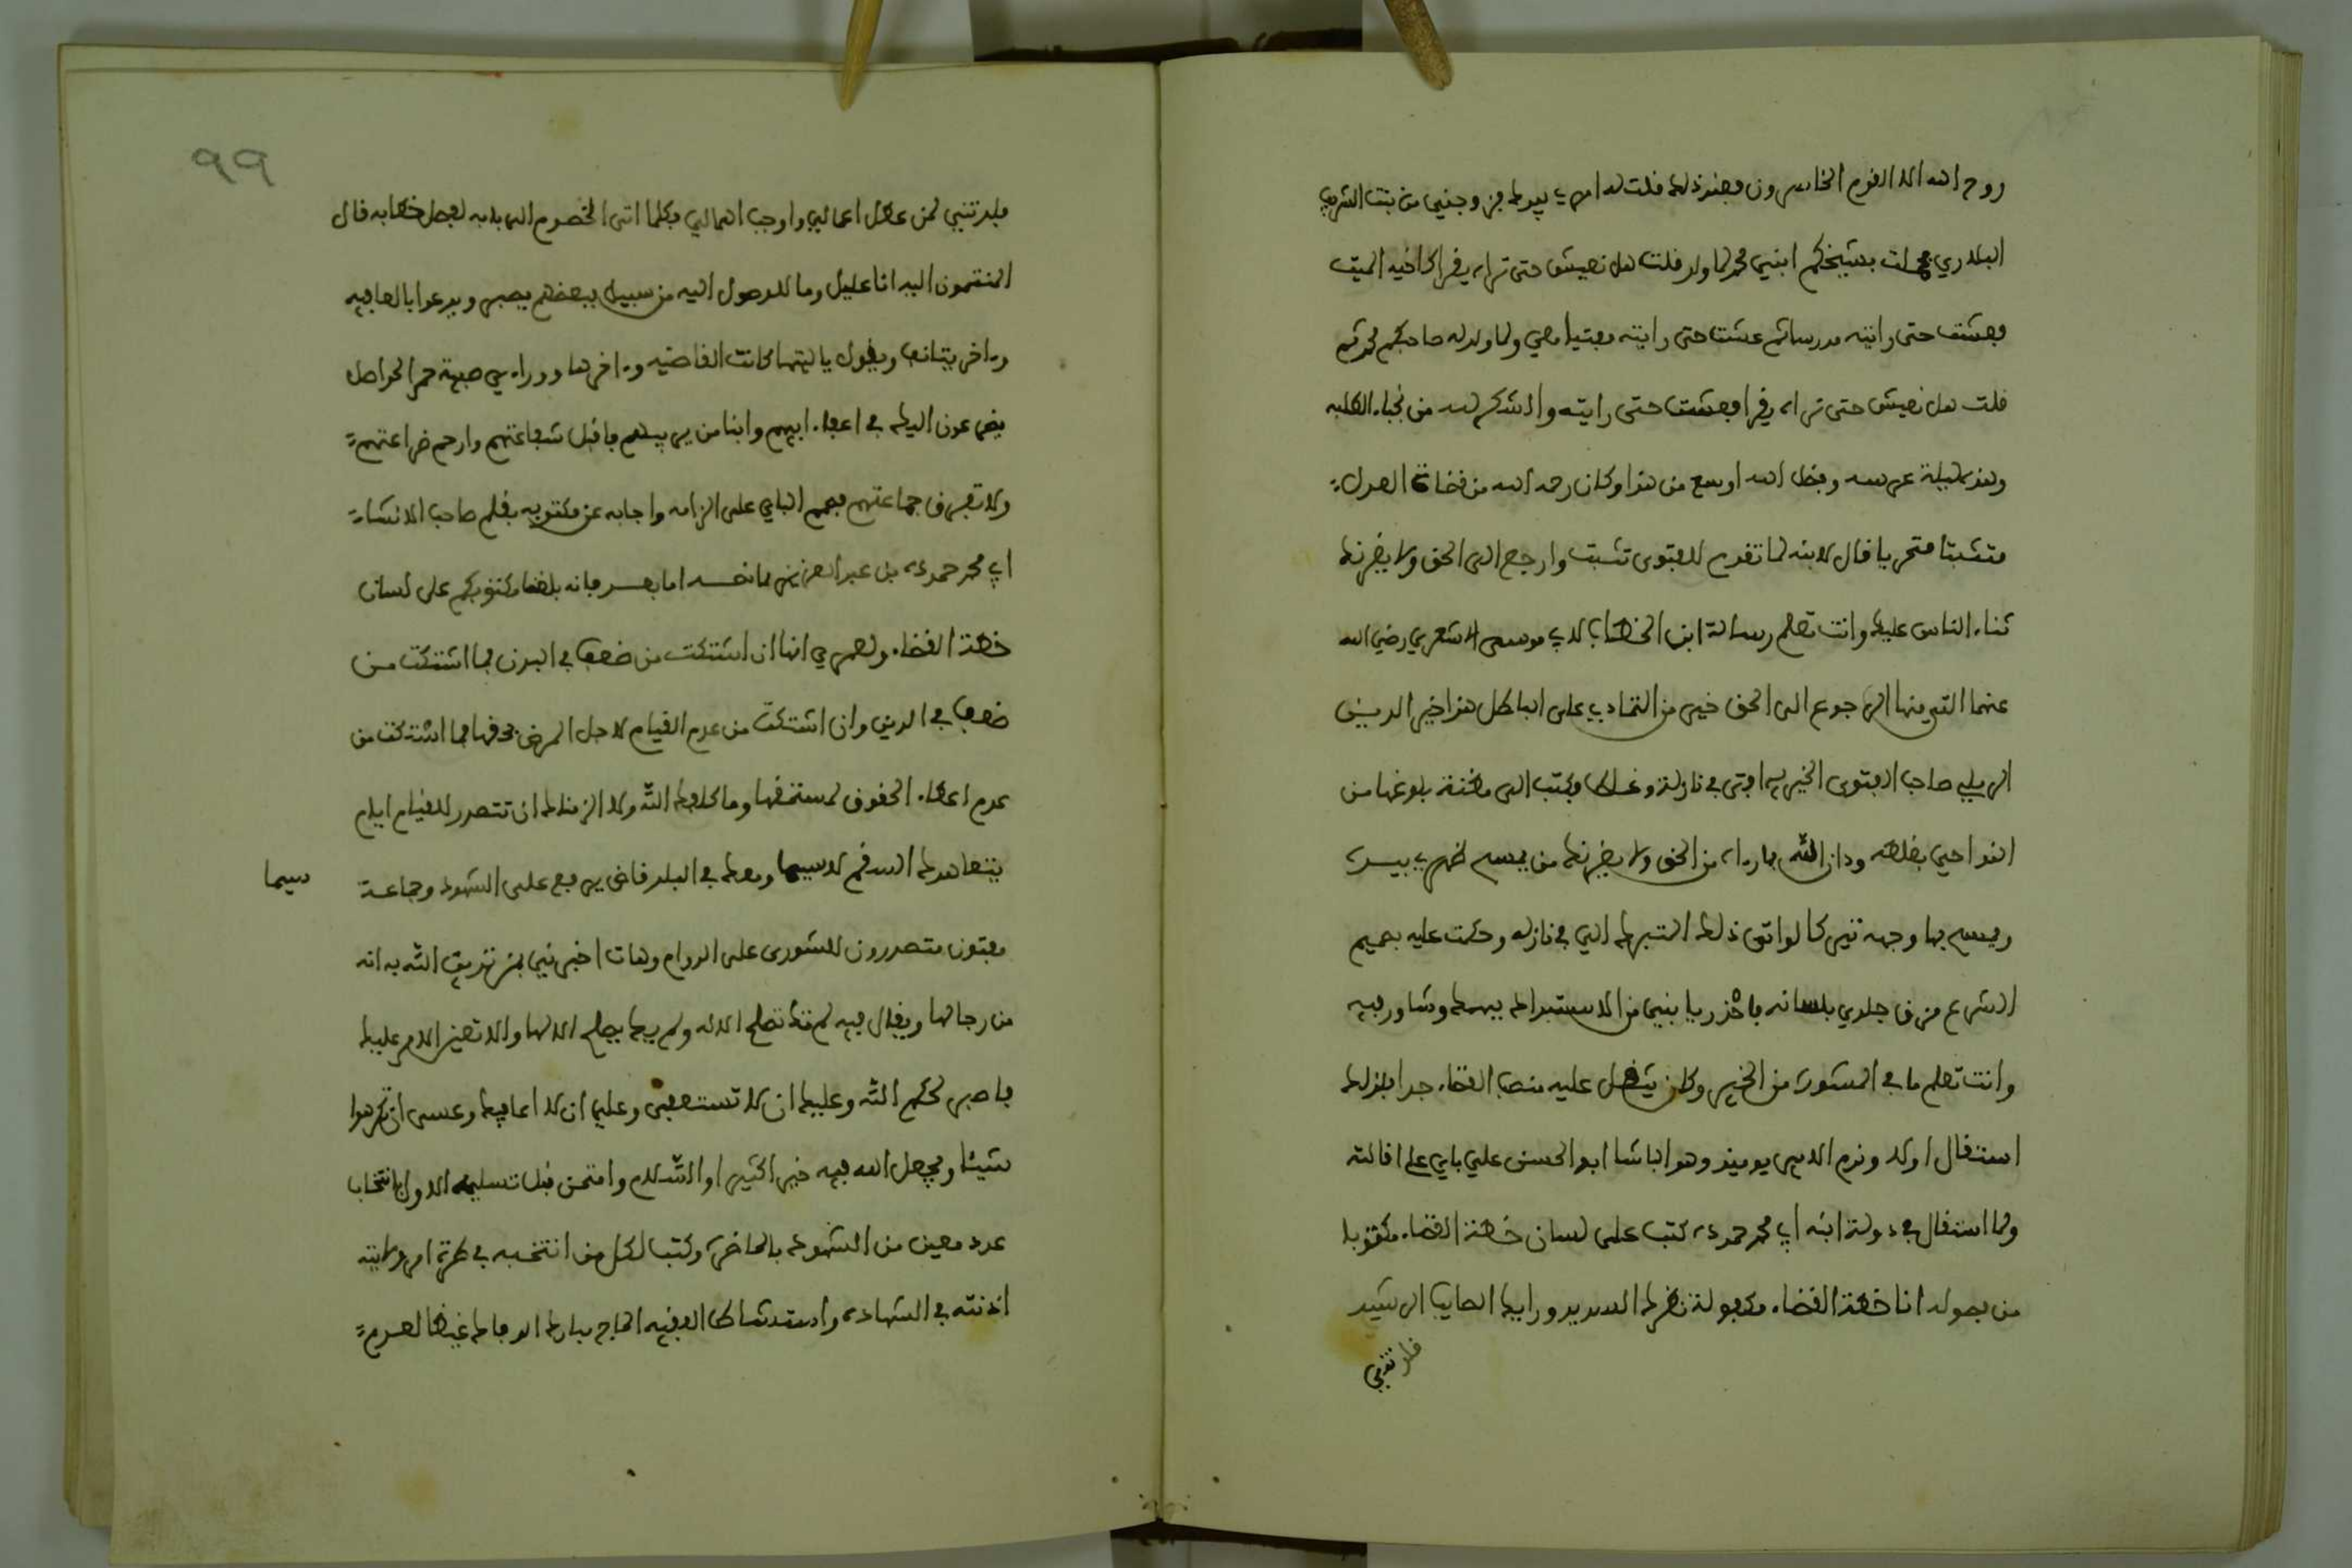 روح الله الا القوم الخاسرون فعند ذلك قلت له امري بيدك فزوجني من بنت الشريف
البلدري فحملت بشيخكم ابني محمد لما ولد قلت هل نعيش حتى نراه يقرا كاخيه الميت
فعشت حتى رايته مدرسا ثم عشت حتى رايته مفتيا معي ولما ولد له صاحبكم محمد
قلت هل نعيش حتى نراه يقرا فعشت حتى رايته والشكر لله من نجباء الطلبه
وهذه ليلة عرسه وفضل الله اوسع من هذا وكان رحمه الله من قضاة العدل
متثبتا متحريا قال لابنه لما تقدم للفتوى تثبت وارجع الى الحق ولا يغرنك
ثناء الناس عليك وانت تعلم رسالة ابن الخطاب لابي موسى الاشعري رضي الله
عنهما التي منها الرجوع الى الحق خير من التمادي على الباطل هذا خير الدين
الرملي صاحب الفتوى الخيريه افتى في نازلة وغلط فكتب الى مظنة بلوغها من
النواحي بغلطه ودان الله بما رءاه من الحق ولا يغرنك من يمسح لضربي بيسرى
ويمسح بها وجهه تبركا لو اتفق ذلك المتبرك الي في نازله وحكمت عليه بصميم
الشرع مزق جلدي بلسانه فاحذر يا بني من الاستبداد برايك وشاور فيه
وانت تعلم ما في المشورة من الخير وكان يثقل عليه منصب القضاء جدا فلذلك
استقال اولا ونزع الامير يومئذ وهو الباشا ابو الحسن علي باي على اقالته
ولما استقال في دولة ابنه ابي محمد حمودة كتب على لسان خطة القضاء مكتوبا
من فصوله انا خطة القضاء مكفولة نظرك السديد ورايك الصايب الرشيد
فلا تثني
99
فلا تثني لمن عطل اعمالي واوجب اهمالي فكلما اتى الخصوم الى بابه لفصل خطابه قال
المنتمون اليه انا عليل وما للوصول اليه من سبيل فبعضهم يصبر ويدعو بالعافيه
وءاخر يتانف ويقول يا ليتها كانت القاضيه وءاخر هاد وراءي صبية حمر الحواصل
يضرعون اليك في اعفاء ابيهم وابنا من يربيهم فاقبل شفاعتهم وارحم ضراعتهم
ولا تفرق جماعتهم فصمم الباي على الزامه واجابه عن مكتوبه بقلم صاحب الانشاء
ابي محمد حمودة بن عبد العزيز بما نصه اما بعد فانه بلغنا مكتوبكم على لسان
خطة القضاء ولعمري انها ان اشتكت من ضعف في البدن فما اشتكت من
ضعف في الدين وان اشتكت من عدم القيام لاجل المرض بحقها فما اشتكت من
عدم اعطاء الحقوق لمستحقها وما كلفك الله ولا الزمناك ان تتصدر للقيام ايام
يتعاهدك السقم لاسيما ومعك في البلد قاض يرفع على الشهود وجماعة
سيما
مفتون متصدرون للشورى على الدوام وهات اخبرني بمن نديق الله به انه
من رجالها ويقال فيه لم تك تصلح الا له ولم يك يصلح الا لها والا تعين الامر عليك
فاصبر لحكم الله وعليك ان لا تستعفى وعلي ان لا اعافيك وعسى ان تكرهوا
شيئا ويجعل الله فيه خيرا كثيرا والسلام وامتحن قبل تسليمه الاول بانتخاب
عدد معين من الشهود بالحاضرة وكتب لكل من انتخبه في طرة امر ولايته
اذنته في الشهادة واستشاط الفقيه الحاج مبارك الدجاط غيظا لعدم